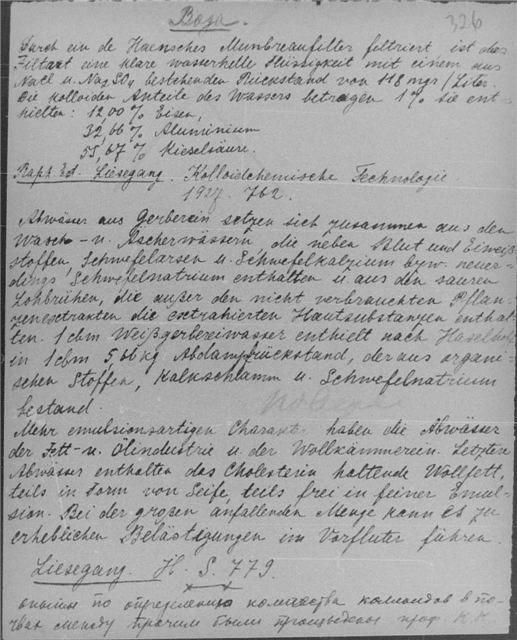 Вода.
326
Durch ein de Haensches Munbreanfilter filtriert, ist das
Filtrat eine klare wasserhelle Flüssigkeit mit einem aus
NaCl u. Na2SO4 bestehenden Rückstand von 118 mgr/Liter.
Die kolloiden Anteile des Wassers betragen 1% sie ent-
hielten: 12,00% Eisen,
32,66% Aluminium
55,67% Kieselsäure.
Raph. Ed. Liesegang. Kolloidchemische Technologie.
1927. 762.
Abwässer aus Gerberein setzen sich zusammen aus den
Wasch- u. Äscherwässern, die neben Blut und Eiweiß-
stoffen, Schwefelarsen u. Schwefelkalzium bzw. neuer-
dings Schwefelnatrium enthalten u. aus den sauren
Lohbrühen, die außer den nicht verbrauchten Pflan-
zenextrakten die extrahierten Hautsubstanzen enthal-
ten. 1 cbm Weißgerbereiwasser enthielt nach Haselhoff
in 1 cbm 5,66 kg Abdampfrückstand, der aus organi-
schen Stoffen, Kalkschlamm u. Schwefelnatrium
bestand.
Mehr emulsionsartigen Charakt. haben die Abwässer
der Fett- u. Ölindustrie u. der Wollkämmerein. Letztere
Abwässer enthalten das Cholesterin haltende Wollfett,
teils in Form von Seife, teils frei in feiner Emul-
sion. Bei der großen anfallenden Menge kann es zu
erheblichen Belästigungen im Vorfluter führen.
Liesegang. H. S. 779.
опыты по определению количества коллоидов в по-
чвах между прочим были произведены проф. К. К